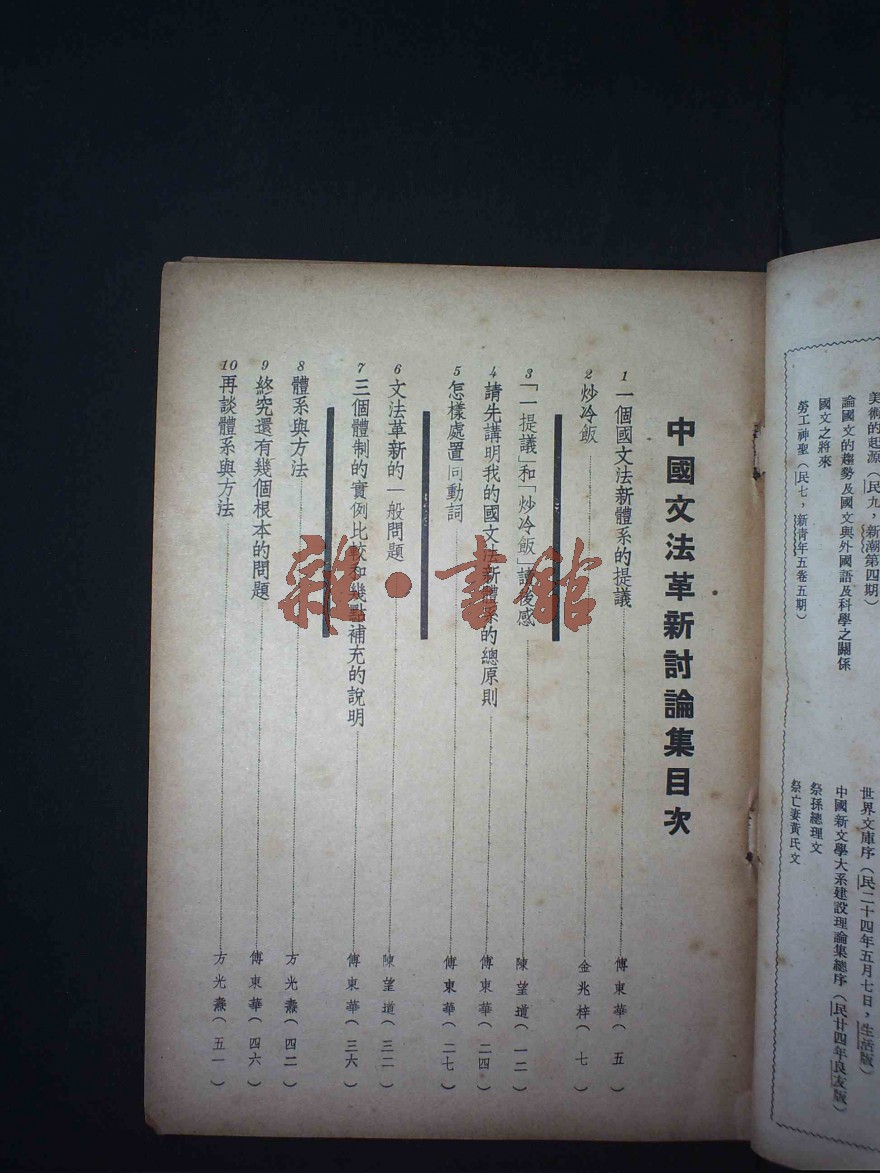 美術的起源（民九，新潮第四期）
論國文的趨勢及國文與外國語及科學之關係
國文之將來
勞工神聖（民七，新青年五卷五期）
世界文庫序（民二十四年五月七日，生活版）
中國新文學大系建設理論集總序（民廿四年良友版）
祭孫總理文
祭亡妻黃氏文
中國文法革新討論集目次
1 一個國文法新體系的提議 傅東華（五）
2 炒冷飯 金兆梓（七）
3 「一提議」和「炒冷飯」讀後感 陳望道（一二）
4 請先講明我的國文法新體系的總原則 傅東華（二四）
5 怎樣處置同動詞 傅東華（二七）
6 文法革新的一般問題 陳望道（三二）
7 三個體制的實例比較和幾點補充的說明 傅東華（三六）
8 體系與方法 方光燾（四二）
9 終究還有幾個根本的問題 傅東華（四六）
10 再談體系與方法 方光燾（五一）
雜·書館